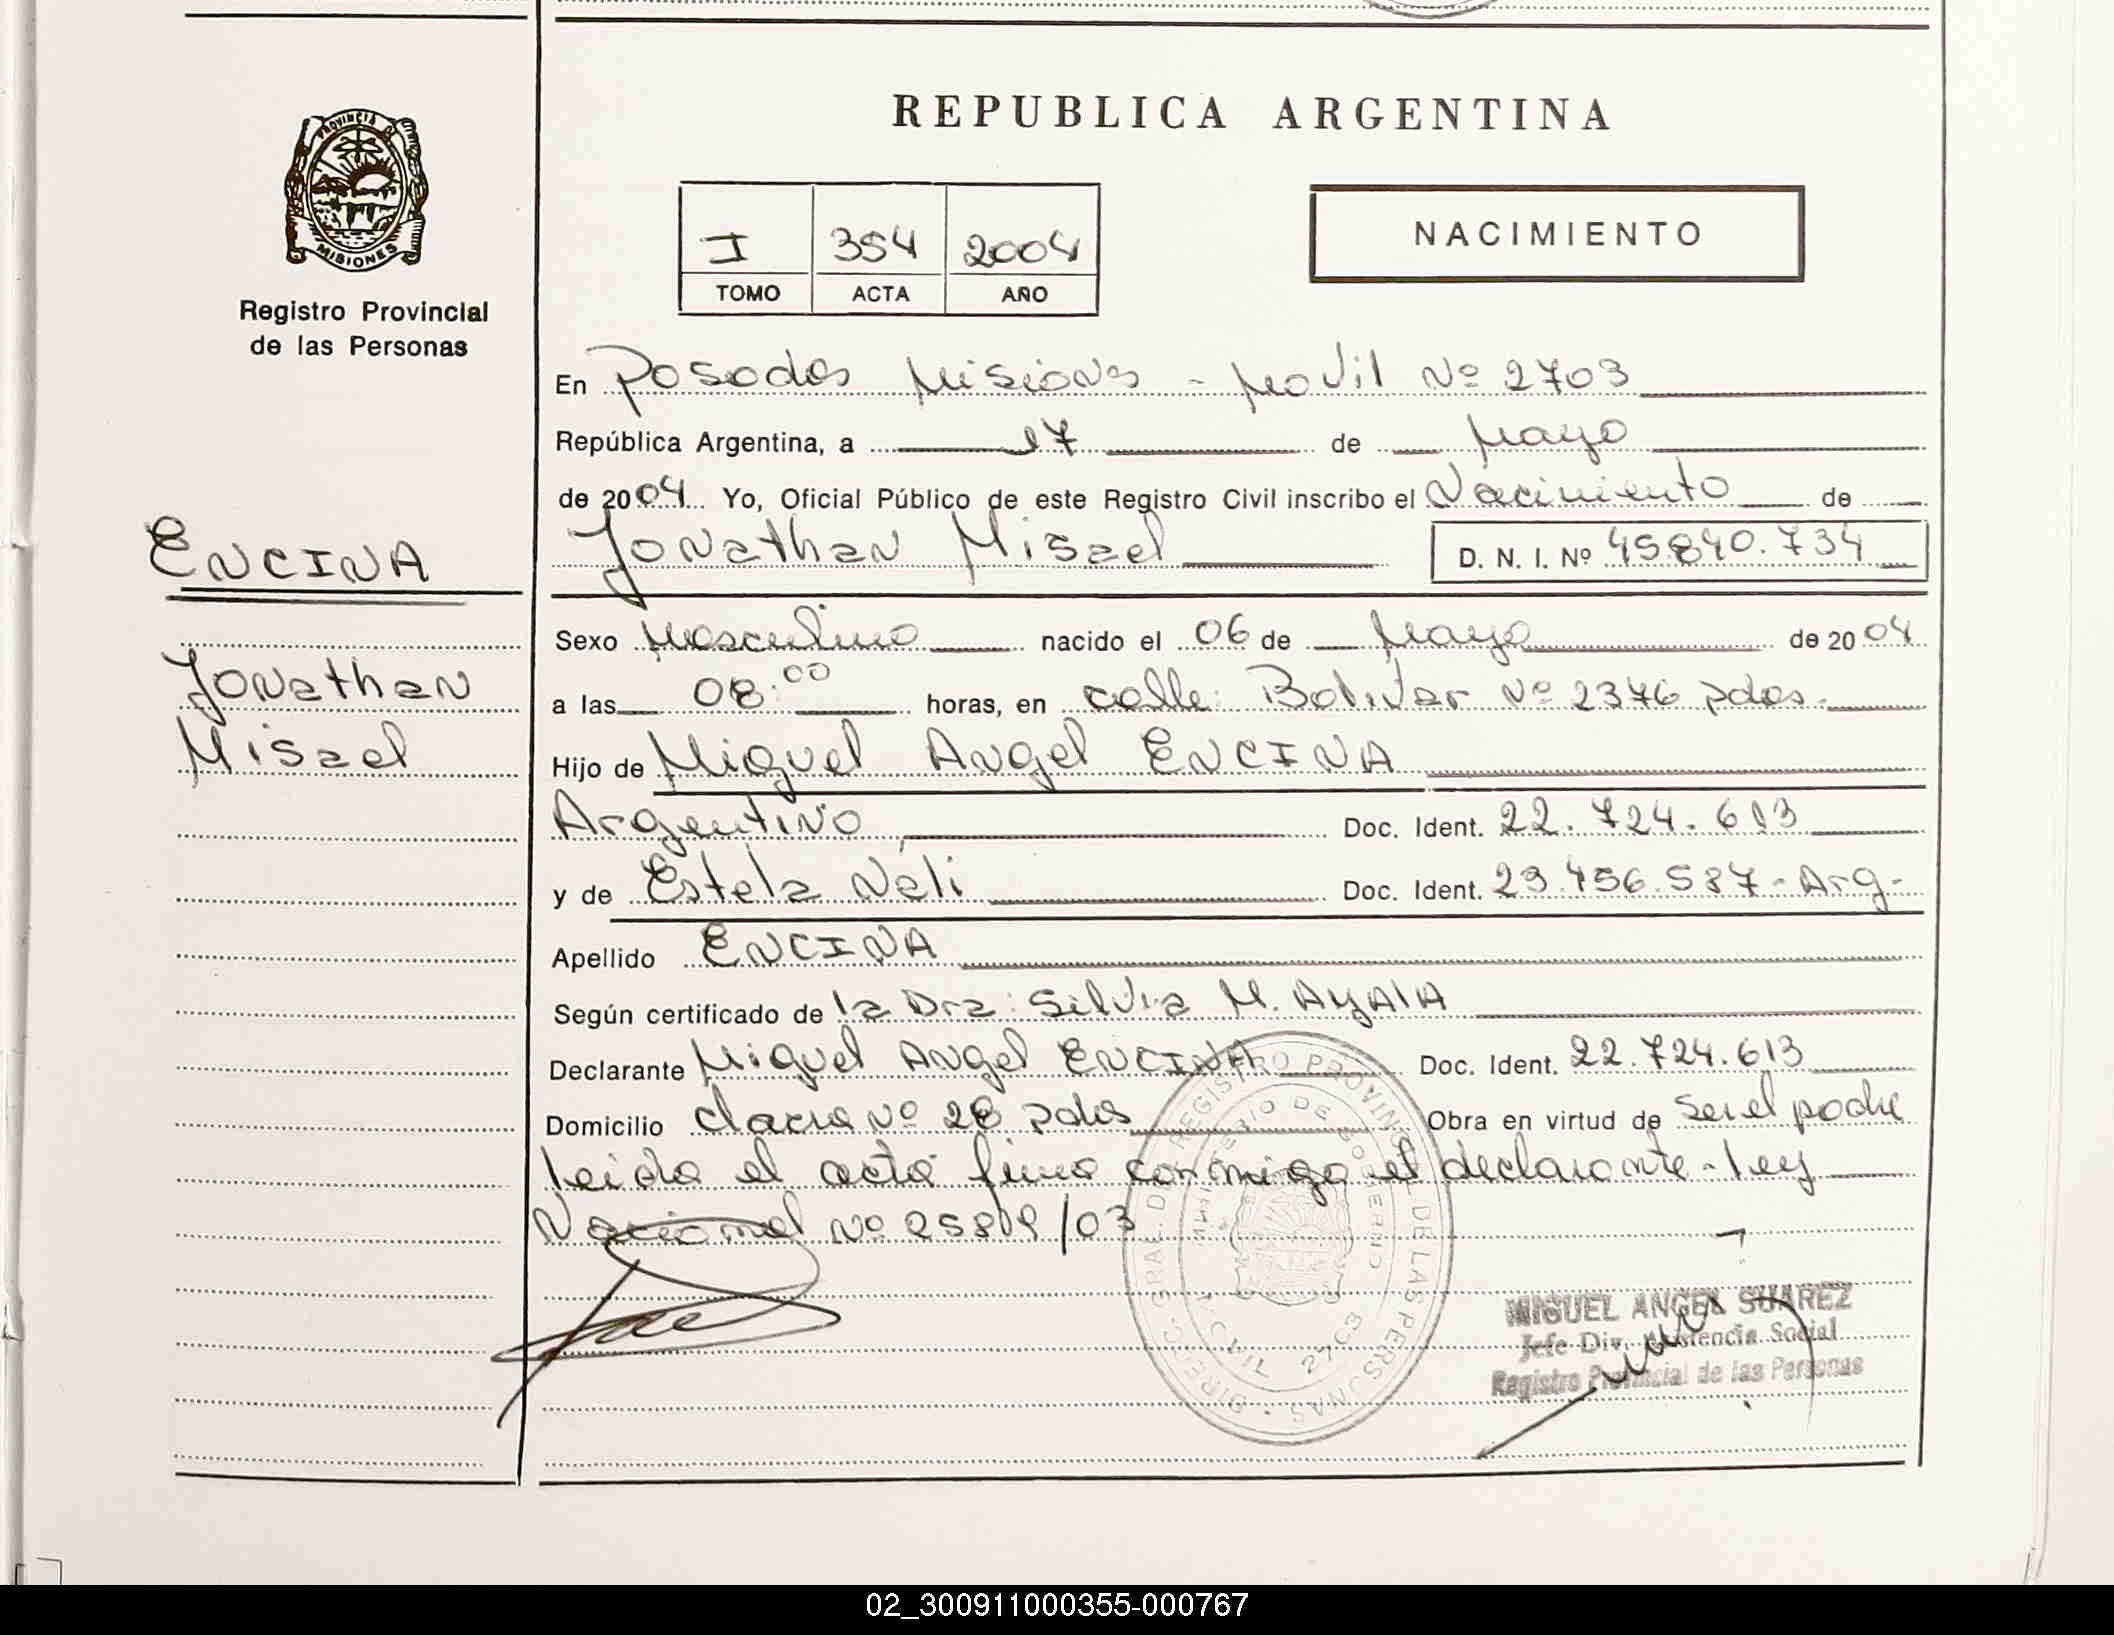 REPUBLICA ARGENTINA
PROVINCIA DE
MISIONES
Registro Provincial
de las Personas
I 354 2004
TOMO ACTA AÑO
NACIMIENTO
En Posadas Misiones - Movil Nº 2703
República Argentina, a 17 de Mayo
de 2004 Yo, Oficial Público de este Registro Civil inscribo el Nacimiento de
Jonathan Misael D. N. I. Nº 45.840.734
ENCINA
Jonathan
Misael
Sexo Masculino nacido el 06 de Mayo de 2004
a las 08:00 horas, en calle: Bolivar Nº 2376 pdas.
Hijo de Miguel Angel ENCINA
Argentino Doc. Ident. 22.724.613
y de Estela Neli Doc. Ident. 23.456.587 - Arg -
Apellido ENCINA
Según certificado de la Dra: Silvia M. AYALA
Declarante Miguel Angel ENCINA Doc. Ident. 22.724.613
Domicilio chacra Nº 28 pdas Obra en virtud de ser el padre
leida el acta firma conmigo el declarante - ley
Nacional Nº 25819/03
DIREC. GRAL. DEL REGISTRO PROVINC. DE LAS PERSONAS
MINISTERIO DE GOBIERNO
MOVIL 2703
MIGUEL ANGEL SUAREZ
Jefe Div. Asistencia Social
Registro Provincial de las Personas
02_300911000355-000767